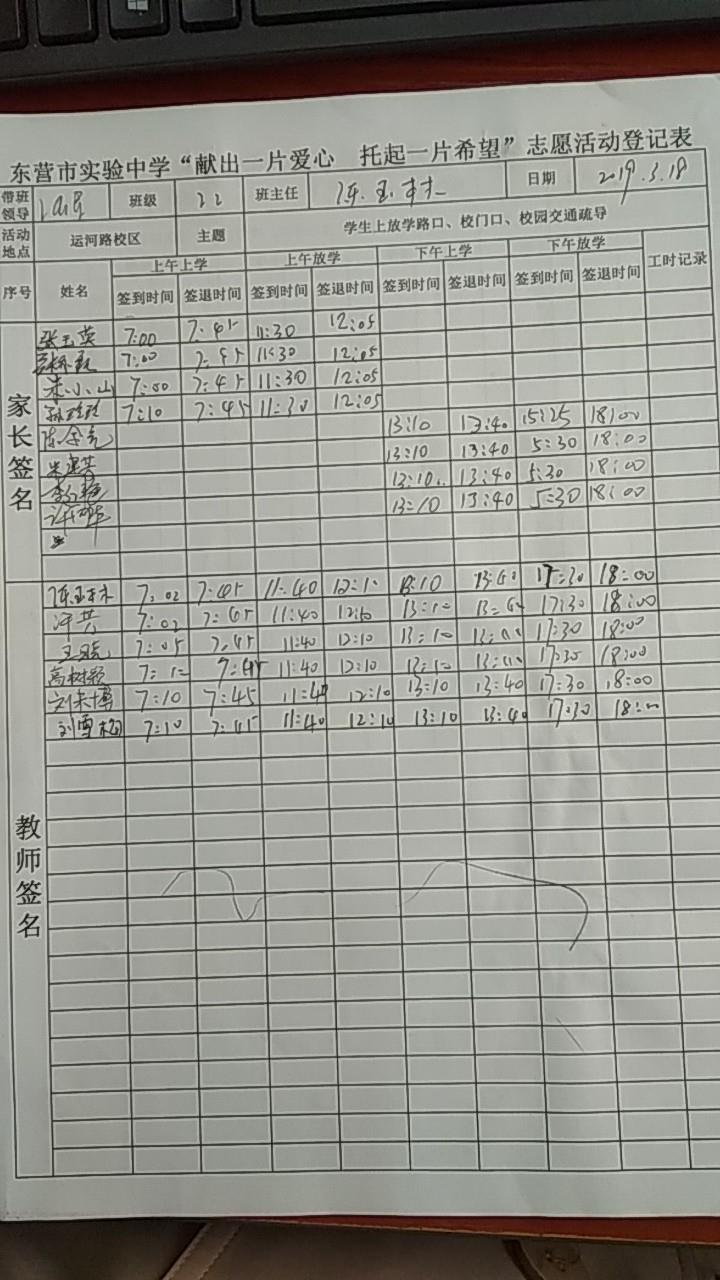 东营市实验中学“献出一片爱心 托起一片希望”志愿活动登记表
带班领导 班级 22 班主任 陈玉林 日期 2019.3.18
活动地点 运河路校区 主题 学生上放学路口、校门口、校园交通疏导
序号 姓名 上午上学 上午放学 下午上学 下午放学 工时记录
签到时间 签退时间 签到时间 签退时间 签到时间 签退时间 签到时间 签退时间
家长签名
张玉英 7:00 7:45 11:30 12:05
7:00 7:45 11:30 12:05
朱小山 7:00 7:45 11:30 12:05
7:10 7:45 11:30 12:05
13:10 13:40 15:25 18:00
13:10 13:40 5:30 18:00
13:10 13:40 5:30 18:00
13:10 13:40 5:30 18:00
教师签名
陈玉林 7:02 7:45 11:40 12:10 13:10 13:40 17:30 18:00
7:02 7:45 11:40 12:10 13:10 13:40 17:30 18:00
7:05 7:45 11:40 12:10 13:10 13:40 17:30 18:00
高树颖 7:10 7:45 11:40 12:10 13:10 13:40 17:30 18:00
刘来博 7:10 7:45 11:40 12:10 13:10 13:40 17:30 18:00
刘雪梅 7:10 7:45 11:40 12:10 13:10 13:40 17:30 18:00